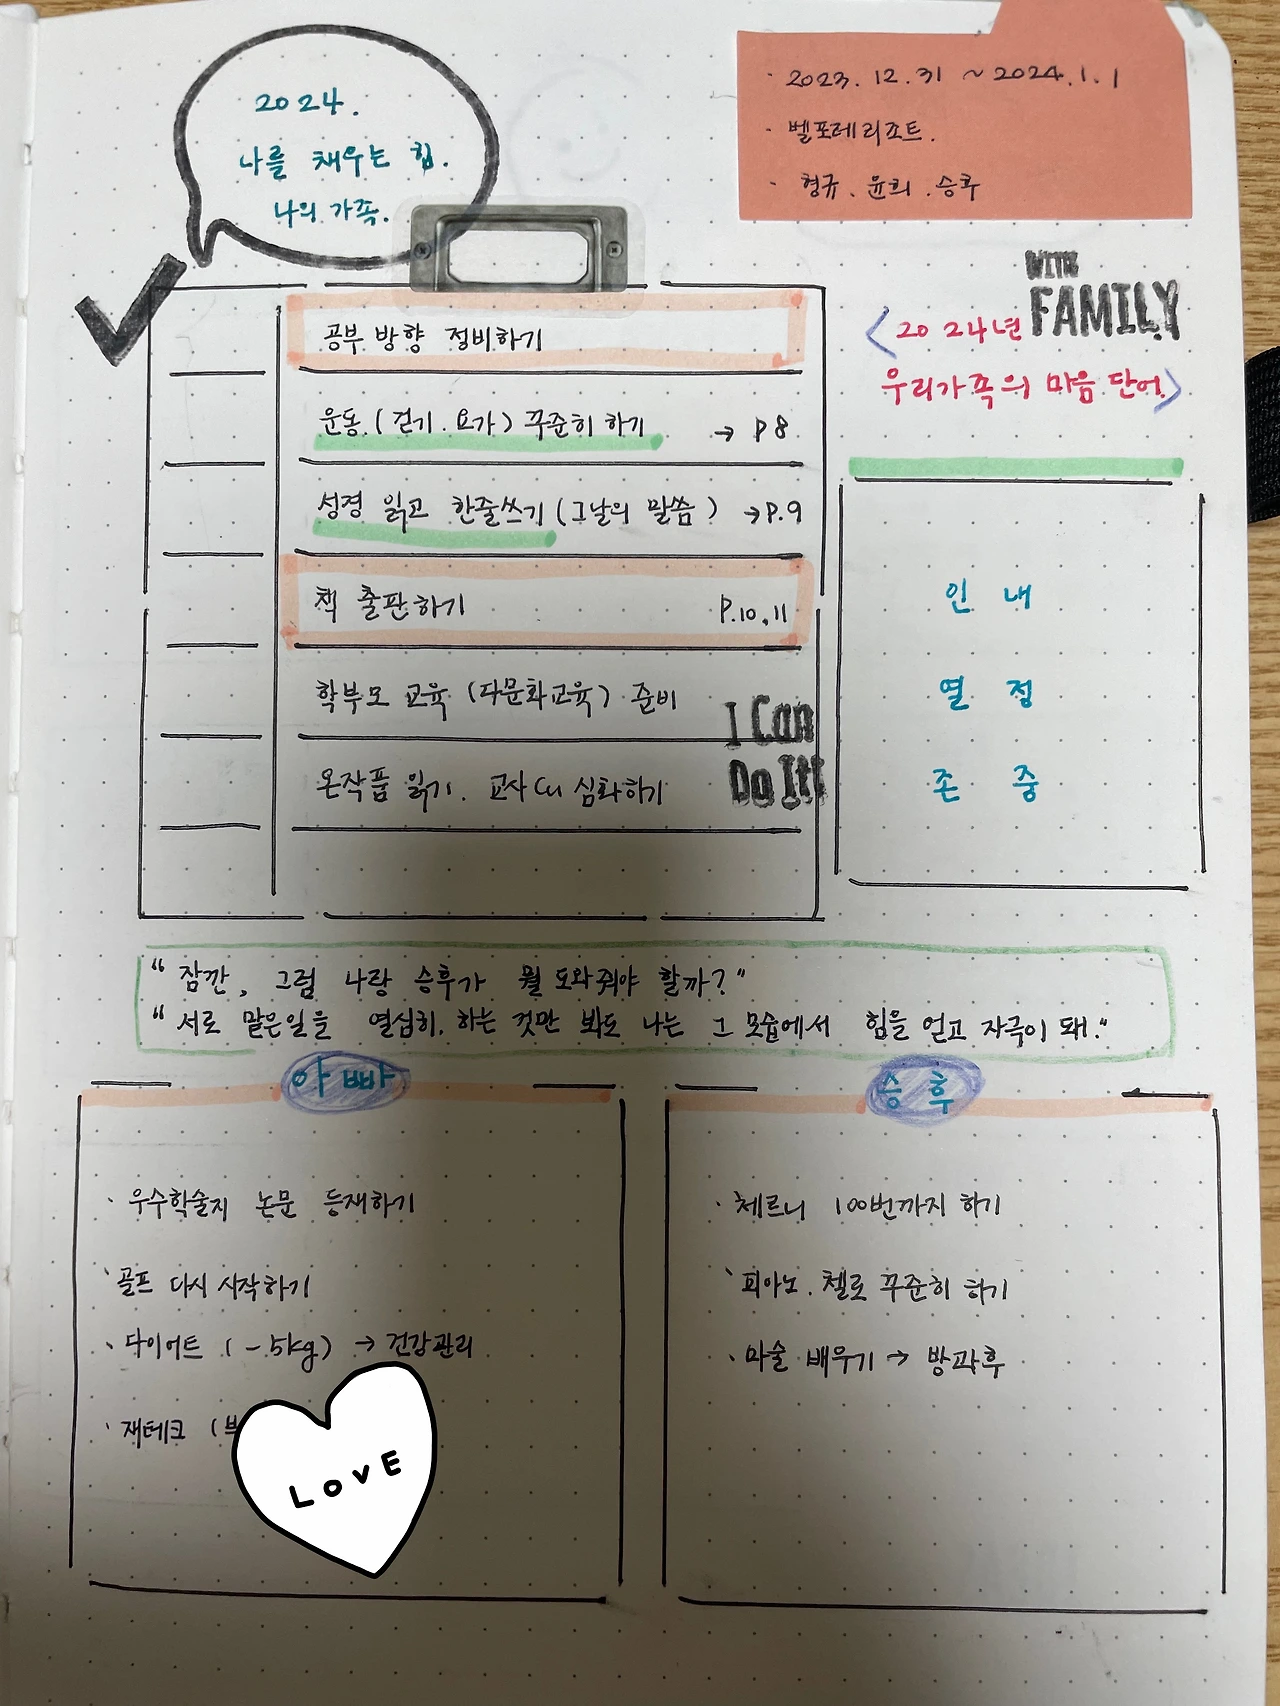 2024.
나를 채우는 힘.
나의 가족.
· 2023. 12. 31 ~ 2024. 1. 1
· 벨포레 리조트.
· 형규. 윤희. 승후
WITH
FAMILY
<2024년
우리가족의 마음 단어>
공부 방향 정비하기
운동 (걷기. 요가) 꾸준히 하기 → P8
성경 읽고 한줄쓰기 (그날의 말씀) → P.9
책 출판하기 P.10, 11
학부모 교육 (다문화교육) 준비
I Can
Do It!
온작품 읽기. 교사 심화하기
인내
열정
존중
“잠깐, 그럼 나랑 승후가 뭘 도와줘야 할까?”
“서로 맡은일을 열심히. 하는 것만 봐도 나는 그 모습에서 힘을 얻고 자극이 돼.”
아빠
· 우수학술지 논문 등재하기
· 골프 다시 시작하기
· 다이어트 (-5kg) → 건강관리
· 재테크 (
LOVE
승후
· 체르니 100번까지 하기
· 피아노. 첼로 꾸준히 하기
· 마술 배우기 → 방과후